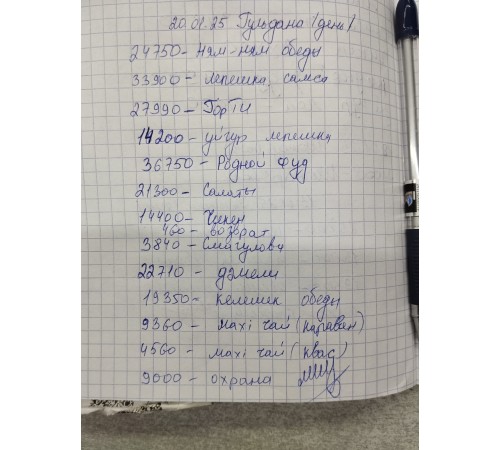 20.01.25 Гульдана (день)
24750 - Ням-ням обеды
33900 - лепешка, самса
27990 - ТорТи
14200 - уйгур лепешка
36750 - Родной Фуд
21300 - Салаты
14400 - Чикен
460 - возврат
3840 - Смагулова
22710 - дәмели
19350 - Келешек обеды
9360 - махі чай (караван)
4560 - махі чай (квас)
9000 - охрана